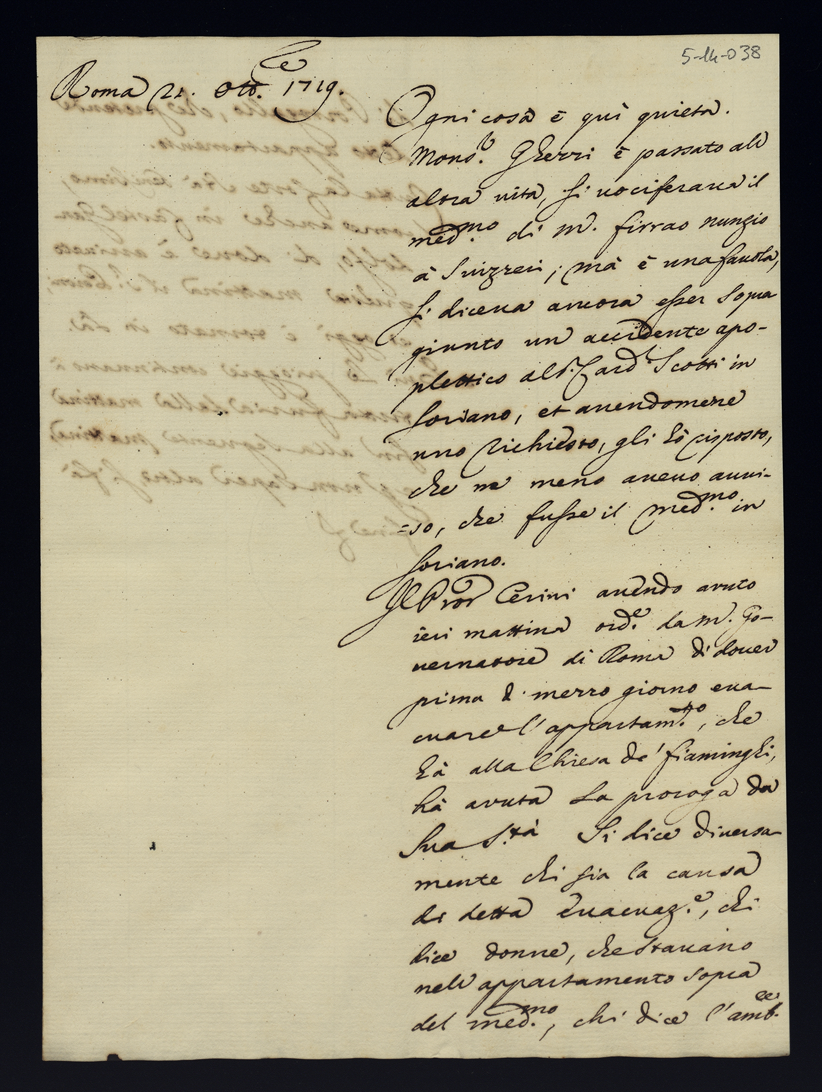 5-14-038
Roma 21. Ott.re 1719.
Ogni cosa è quì quieta.
Mons.r Ghezzi è passato all'
altra vita, si vociferava il
med.mo di M. Firrao nunzio
à Suizzeri; mà è una favola,
si diceva ancora esser sopra
giunto un accidente apo-
plettico al S.r Card Scotti in
Soriano, et avendomene
uno richiesto, gli hò risposto,
che ne meno avevo auvi-
=so, che fusse il med.mo in
Soriano.
Il Pror Cerini avendo avuto
ieri mattina ord.e da M. Go-
vernatore di Roma di dover
prima di mezzo giorno eva-
cuare l'appartam.to, che
hà alla Chiesa de' fiaminghi,
hà avuta la proroga da
Sua S.tà Si dice diversa-
mente chi sia la causa
di detta evacuaz.e, chi
dice donne, che stavano
nell'appartamento sopra
del med.mo, chi dice l'amb.re